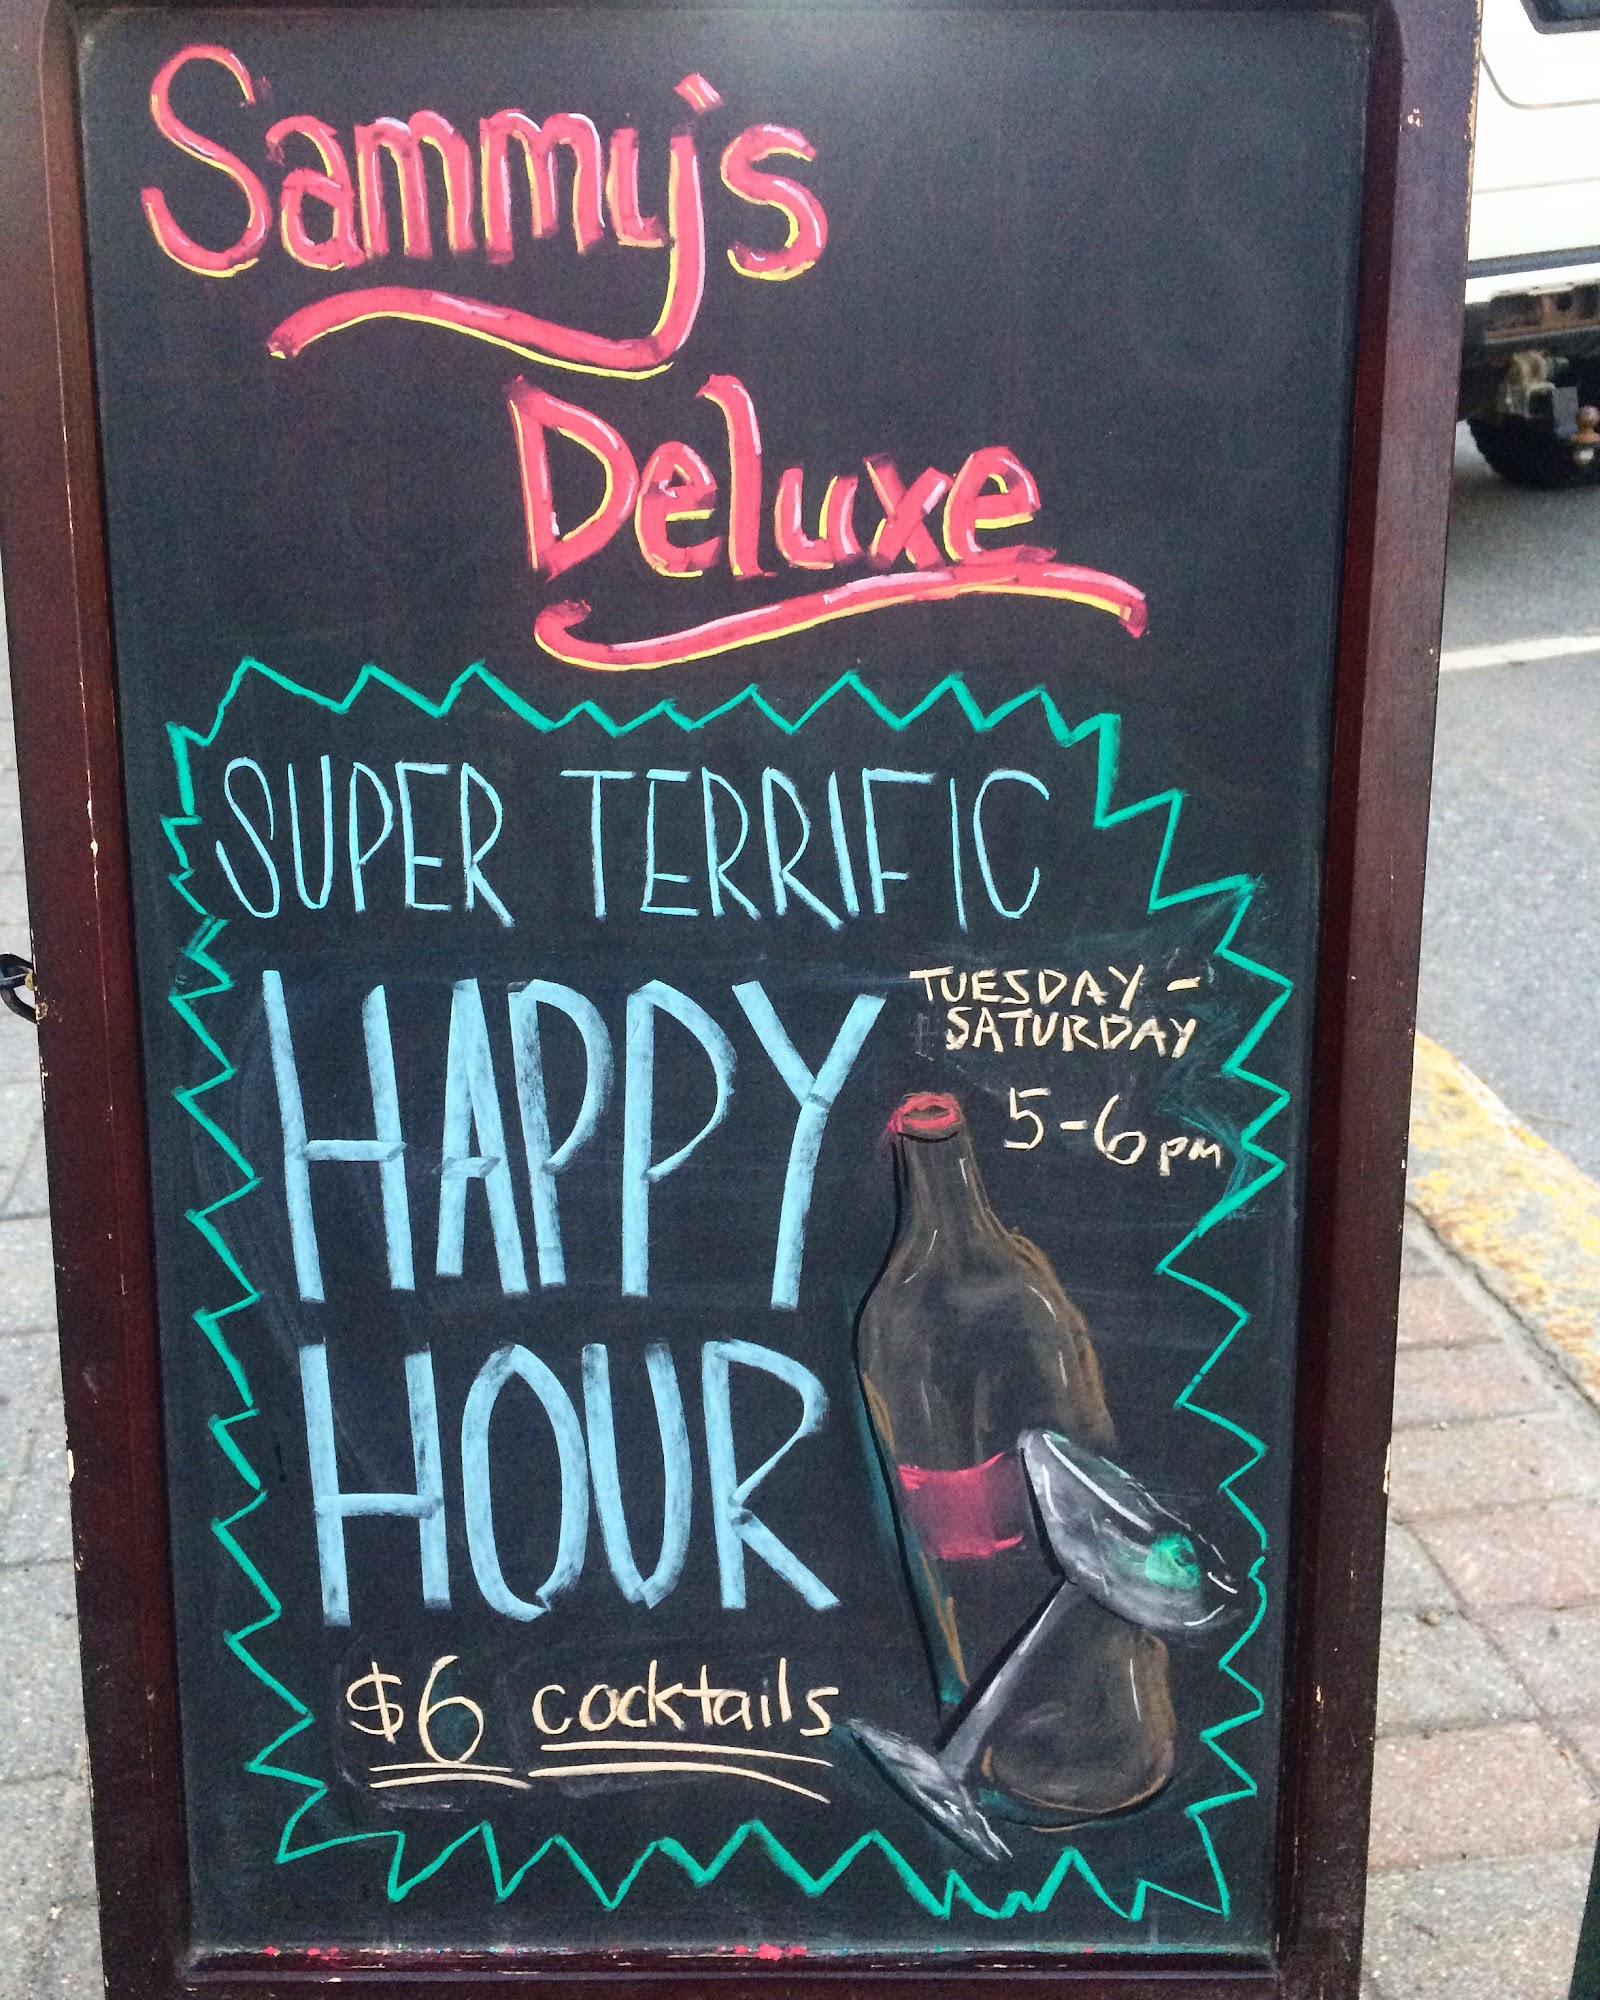 Sammy's
Deluxe
SUPER TERRIFIC
HAPPY
TUESDAY -
SATURDAY
5-6pm
HOUR
$6 cocktails